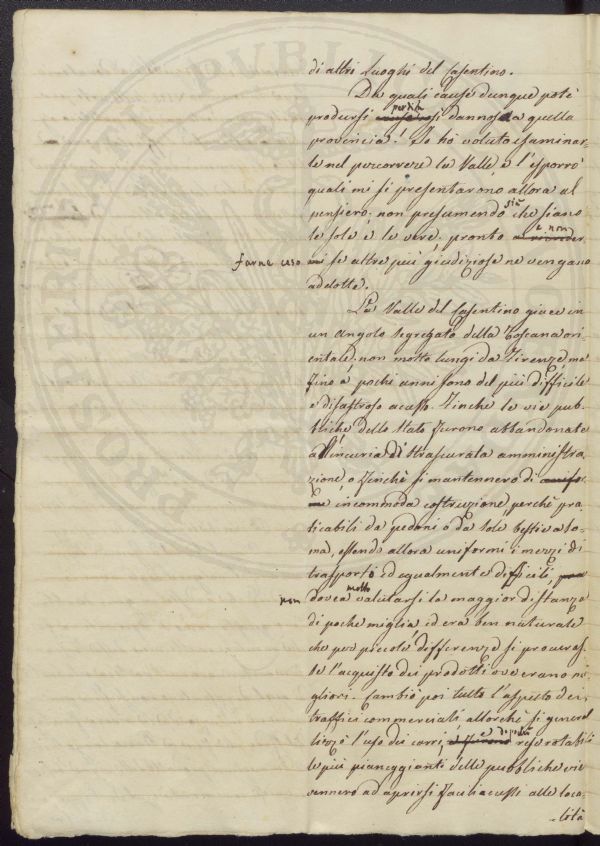 di altri luoghi del Casentino.
Da quali cause dunque potè
prodursi perdita sì dannosa a quella
provincia? Io hò voluto esaminar-
le nel percorrere la Valle, e l'esporrò
quali mi si presentarono allora al
pensiero, non presumendo già che siano
le sole e le vere, pronto a non
farne uso se altre più giudiziose ne vengano
addotte.
La Valle del Casentino giace in
un angolo segregato della Toscana ori-
entale, non molto lungi da Firenze, ma
fino a pochi anni sono del più difficile
e disastroso accesso. Finchè le vie pub-
bliche dello Stato furono abbandonate
all'incuria di trascurata amministra-
zione, o finchè si mantennero di
incommoda costruzione, perchè pra-
ticabili da pedoni o da sole bestie a so-
ma, essendo allora uniformi i mezzi di
trasporto ed egualmente difficili,
non dovea molto valutarsi la maggior distanza
di poche miglia, ed era ben naturale
che per piccole differenze si procuras-
se l'acquisto dei prodotti ove erano mi-
gliori. Cambiò poi tutto l'aspetto dei
traffici commerciali allorchè si genera-
lizzò l'uso dei carri, e dipoi rese rotabili
le più pianeggianti delle pubbliche vie
vennero ad aprirsi facili accessi alle loca-
lità